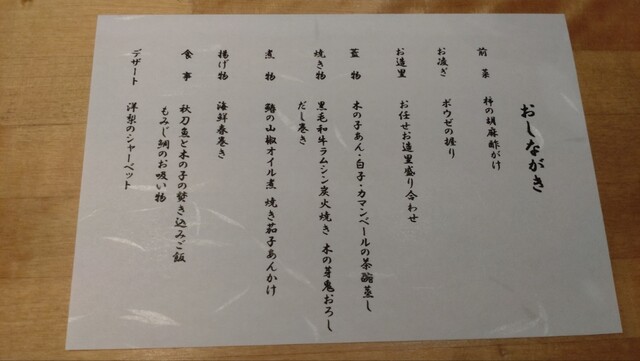 おしながき
前菜 柿の胡麻酢がけ
お凌ぎ ボウゼの握り
お造里 お任せお造里盛り合わせ
蓋物 木の子あん・白子・カマンベールの茶碗蒸し
焼き物 黒毛和牛ラムシン炭火焼き 木の芽鬼おろし
だし巻き
煮物 鰆の山椒オイル煮 焼き茄子あんかけ
揚げ物 海鮮春巻き
食事 秋刀魚と木の子の焚き込みご飯
もみじ鯛のお吸い物
デザート 洋梨のシャーベット